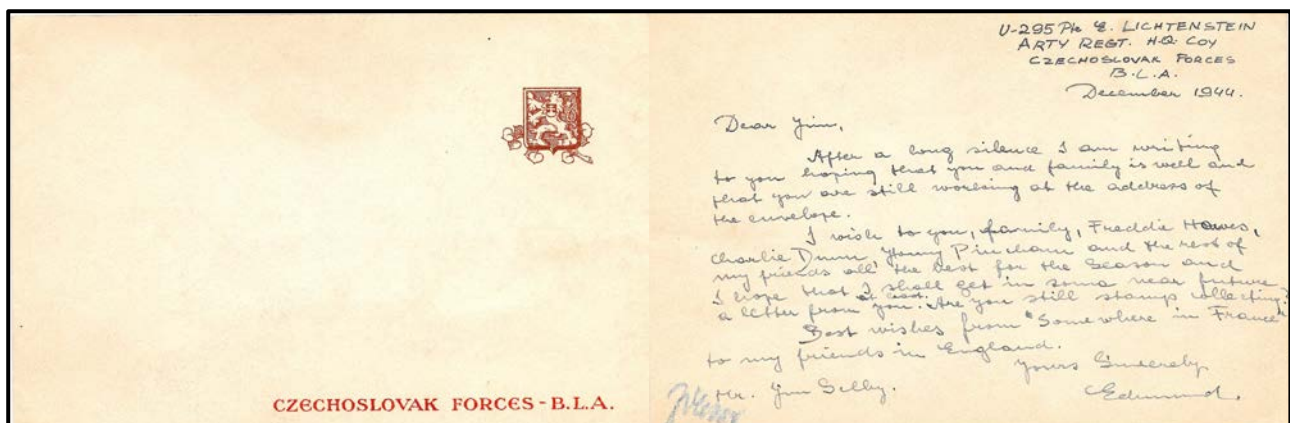 CZECHOSLOVAK FORCES - B.L.A.
U-295 Pte E. LICHTENSTEIN
ARTY REGT. H.Q. COY
CZECHOSLOVAK FORCES
B.L.A.
December 1944.
Dear Jim,
After a long silence I am writing
to you hoping that you and family is well and
that you are still working at the address of
the envelope.
I wish to you, family, Freddie Hawes,
Charlie Dunn, young Pincham and the rest of
my friends all the best for the Season and
I hope that I shall get in some near future
a letter from you. Are you still stamps collecting?
Best wishes from "Somewhere in France"
to my friends in England.
Yours Sincerely
Mr. Jim Selby.
Edmund.